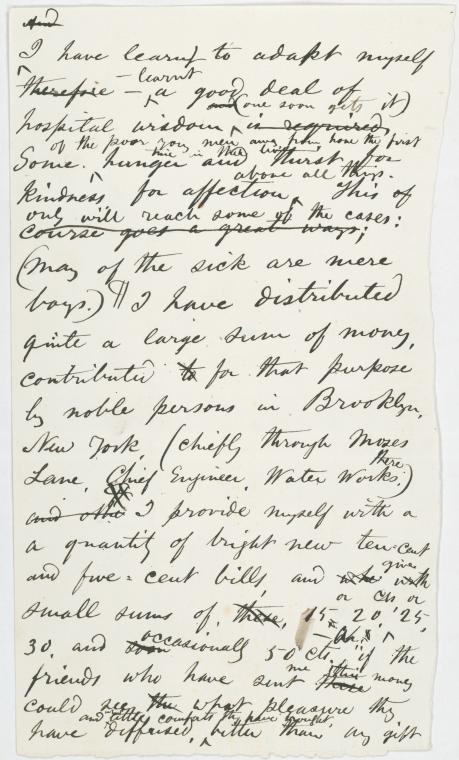 And
I have learnt to adapt myself
therefore – learnt a good deal of
and (one soon gets it)
hospital wisdom is required
of the poor young men away from home the first
time in their lives
Some hunger and thirst for
above all things.
kindness, for affection. This of
only will reach some of the cases:
course goes a great ways;
(May of the sick are mere
boys.) ¶ I have distributed
quite a large sum of money,
contributed to for that purpose
by noble persons in Brooklyn,
New York, (chiefly through Moses
there
Lane, Chief Engineer, Water Works.)
and othe I provide myself with a
a quantity of bright new ten-cent
and five-cent bills and give
or cts or
small sums of these, 15, 20, 25,
30, and soon occasionally 50 cts. – Ah, if the
friends who have sent me this these money
could see the what pleasure they
and little comforts they have bought,
have diffused, better than any gift